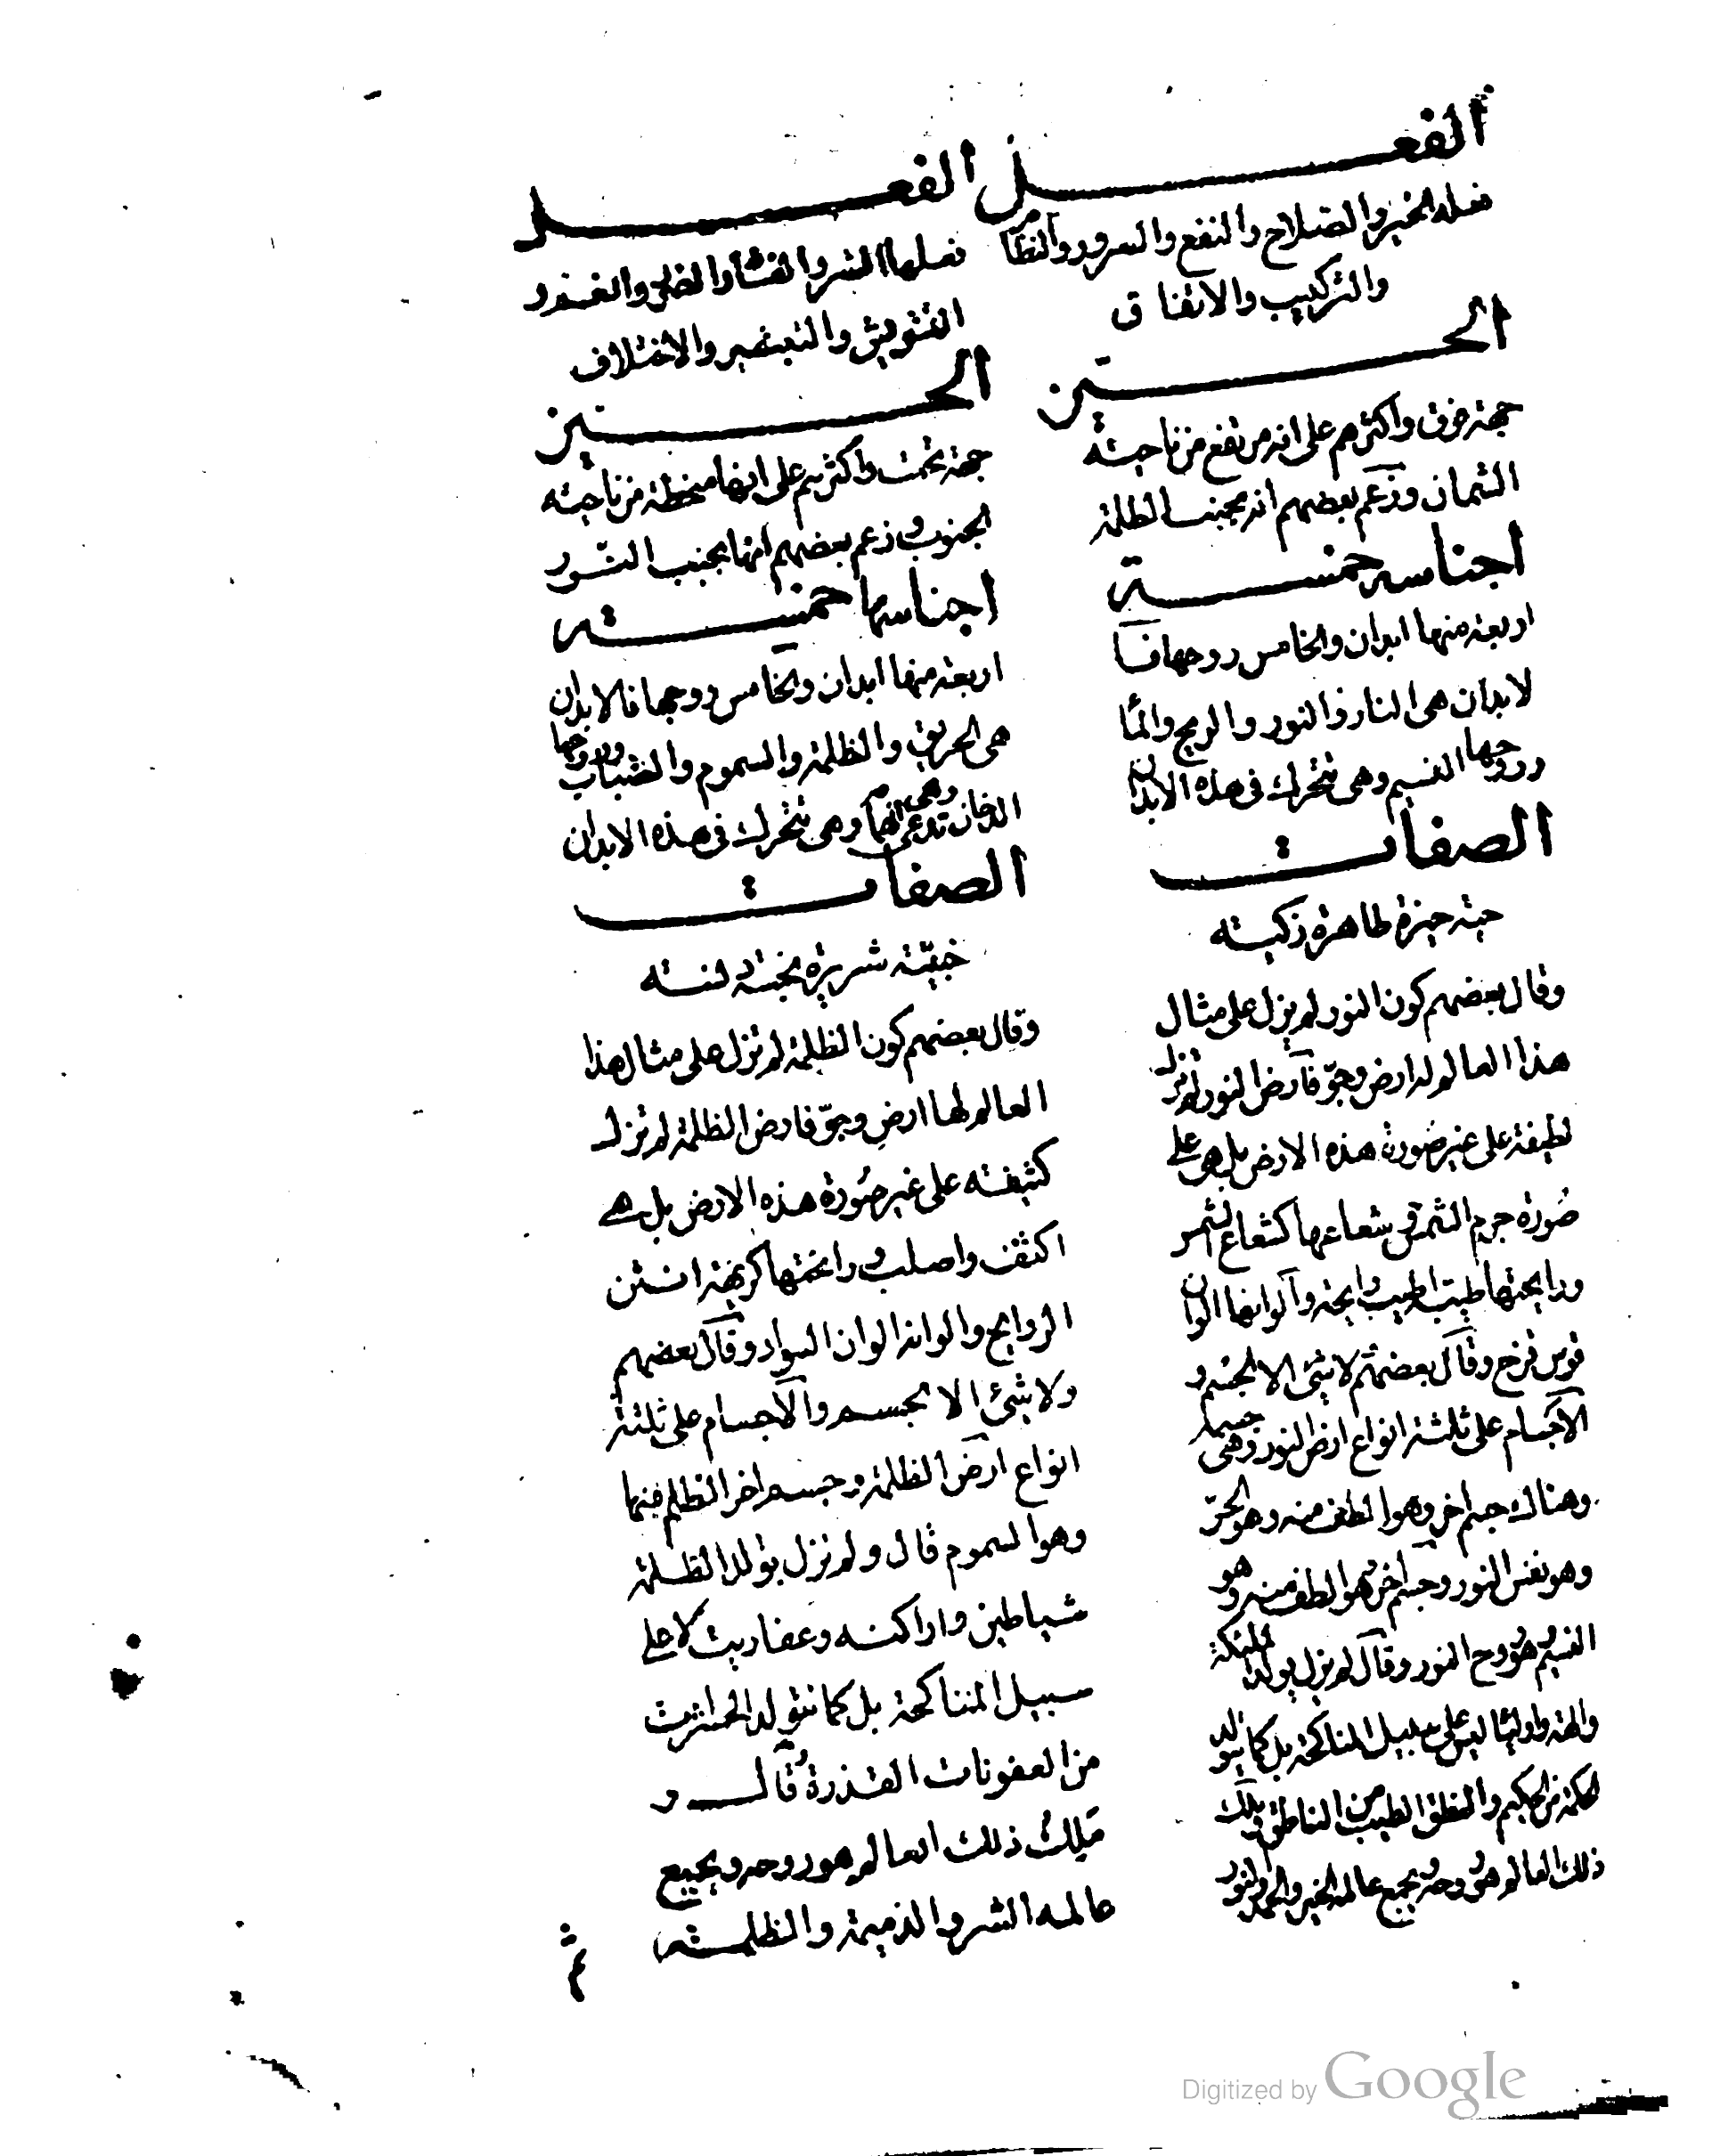 الفعل
فعله الخير والصلاح والنفع والسرور والنظام
والتركيب والاتفاق
الحيز
جهة فوق واكثرهم على انه مرتفع من ناحية
الشمال وزعم بعضهم انه بجنب الظلمة
اجناسه خمسة
اربعة منها ابدان والخامس روحها فا
لابدان هى النار والنور والريح والما
وروحها النسيم وهى تتحرك فى هذه الابدان
الصفات
حية خيرة طاهرة زكية
وقال بعضهم كون النور لم يزل على مثال
هذا العالم له ارض وجو فارض النور لم تزل
لطيفة على غير صورة هذه الارض بل هى على
صورة جرم الشمس وشعاعها كشعاع الشمس
ورايحتها طيبة اطيب رايحة والوانها الوان
قوس قزح وقال بعضهم لا شئ الا الجسم و
الاجسام على ثلثة انواع ارض النور وهى خمسة
وهناك جسم اخر وهو الطف منه وهو الجو
وهو نفس النور وجسم اخر وهو الطف منه وهو
النسيم وهو روح النور وقال لم يزل يولد ملئكة
والهة واوليا ليس على سبيل المناكحة بل كما يتولد
الحكمة من الحكيم والنطق الطيب من الناطق وملك
ذلك العالم هو روحه ويجمع عالمه الخير والحمد والنور
الفعل
فعلها الشر والفساد والضر والغم و
التشويش والتبتير والاختلاف
الحيز
جهة تحت واكثرهم على انها منحطة من ناحية
الجنوب وزعم بعضهم انها بجنب النور
اجناسها خمسة
اربعة منها ابدان والخامس روحها فالابدان
هى الحريق والظلمة والسموم والضباب وروحها
الدخان وهى تدعى وهى تتحرك فى هذه الابدان
الصفات
خبيثة شريرة نجسة دنسة
وقال بعضهم كون الظلمة لم تزل على مثال هذا
العالم لها ارض وجو فارض الظلمة لم تزل
كثيفة على غير صورة هذه الارض بل هى
اكثف واصلب ورائحتها كريهة انتن
الروايح والوانها الوان السواد وقال بعضهم
ولا شئ الا الجسم والاجسام على ثلثة
انواع ارض الظلمة وجسم اخر اظلم منها
وهو السموم قال ولم تزل يولد الظلمة
شياطين واراكنه وعفاريت لا على
سبيل المناكحة بل كما تتولد الحشرات
من العفونات القذرة قال و
ملك ذلك العالم هو روحه ويجمع
عالمه الشر والذميمة والظلمة
ثم
Digitized by Google